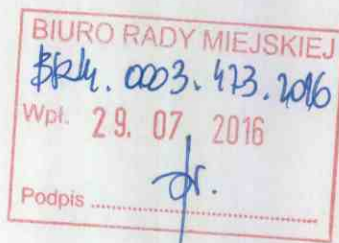 BIURO RADY MIEJSKIEJ
BRM. 0003. 473. 2016
Wpł. 29. 07. 2016
Podpis ....................